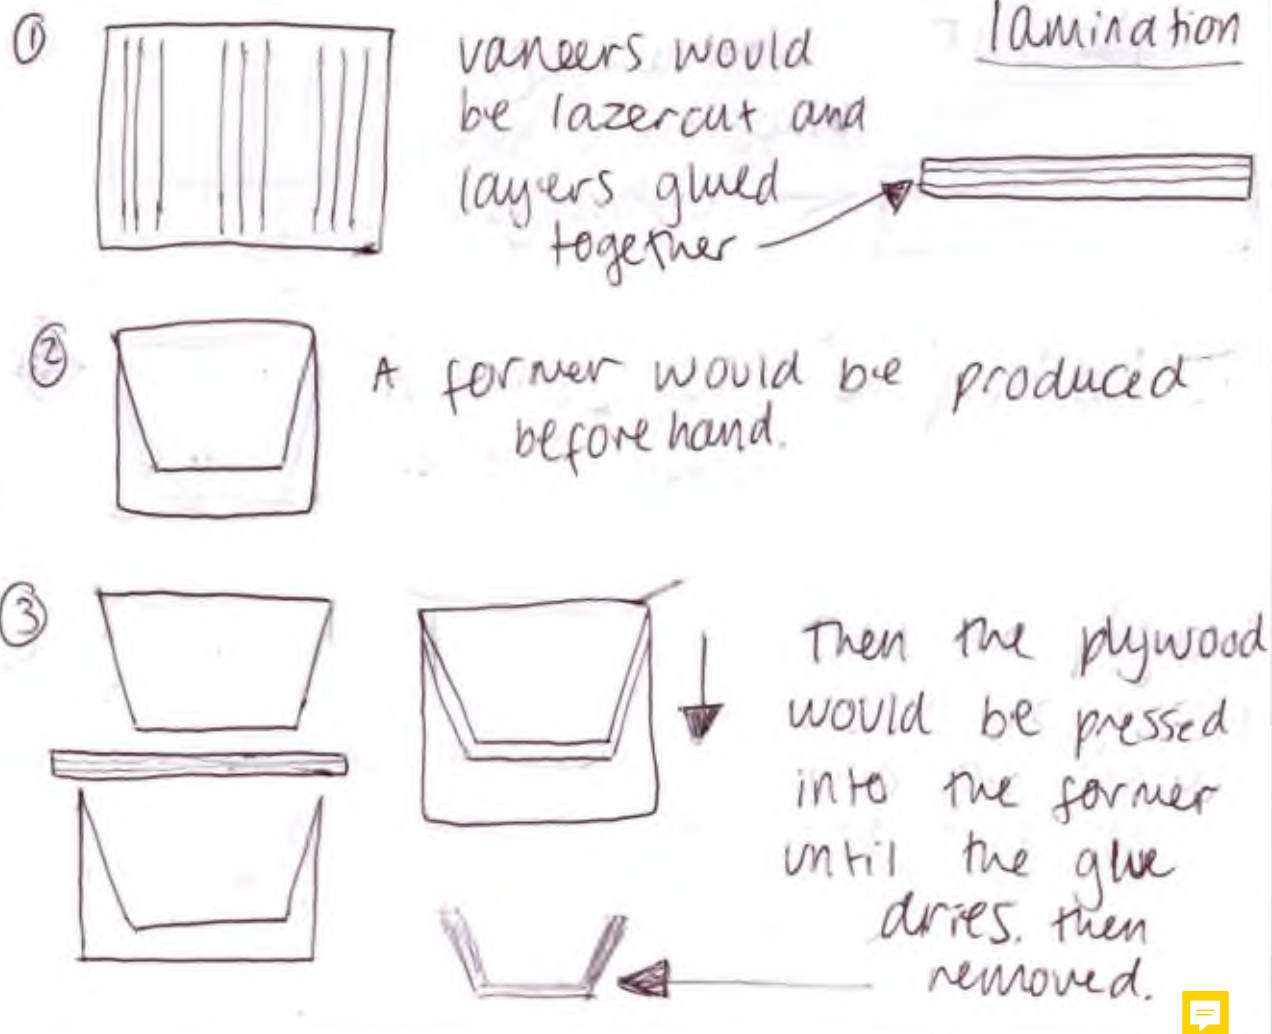 lamination
①
vaneers would
be lazercut and
layers glued
together
②
A former would be produced
before hand.
③
Then the plywood
would be pressed
into the former
until the glue
dries. then
removed.